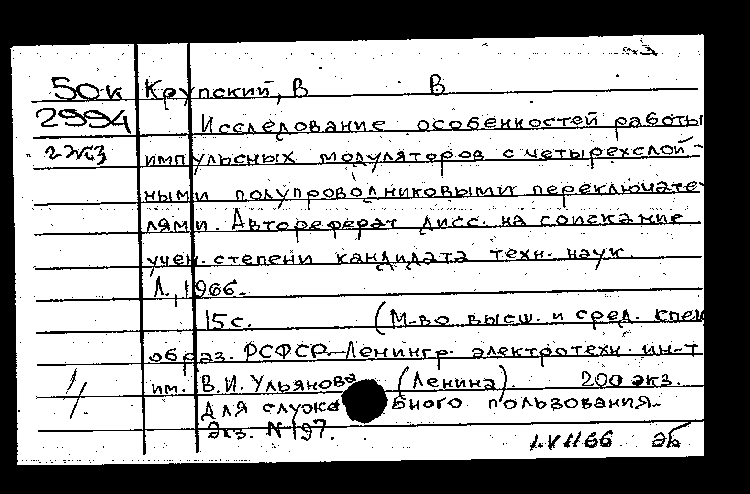 50к Крупский, В В
2994 Исследование особенностей работы
2 экз импульсных модуляторов с четырехслой-
ными полупроводниковыми переключате-
лями. Автореферат дисс. на соискание
учен. степени кандидата техн. наук.
Л., 1966.
15 с. (М-во высш. и сред. спец
образ. РСФСР. Ленингр. электротехн. ин-т
им. В.И. Ульянова (Ленина). 200 экз.
Для служебного пользования.
Экз. N 197.